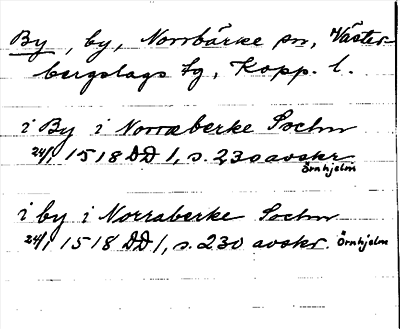 By, by, Norrbärke sn, Väster-
bergslags tg, Kopp. l.
i By i Norraberke Sochn
24/1 1518 DD 1, s. 230 avskr.
Örnhjelm
i by i Norraberke Sochn
24/1 1518 DD 1, s. 230 avskr. Örnhjelm